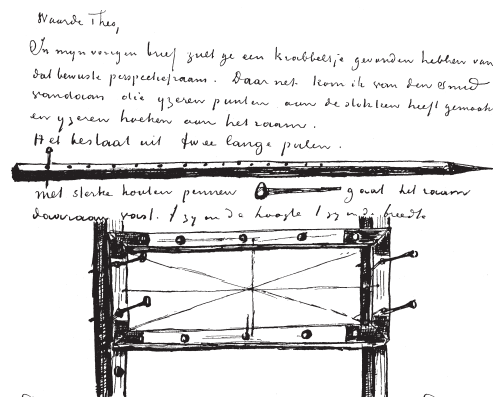 Waarde Theo,
In mijn vorigen brief zult ge een krabbeltje gevonden hebben van
dat bewuste perspectiefraam. Daar net kom ik van den smid
vandaan die yzeren punten aan de stokken heeft gemaakt
en yzeren hoeken aan het raam.
Het bestaat uit twee lange palen.
met sterke houten pennen gaat het raam
daaraan vast. 't zy in de hoogte 't zy in de breedte